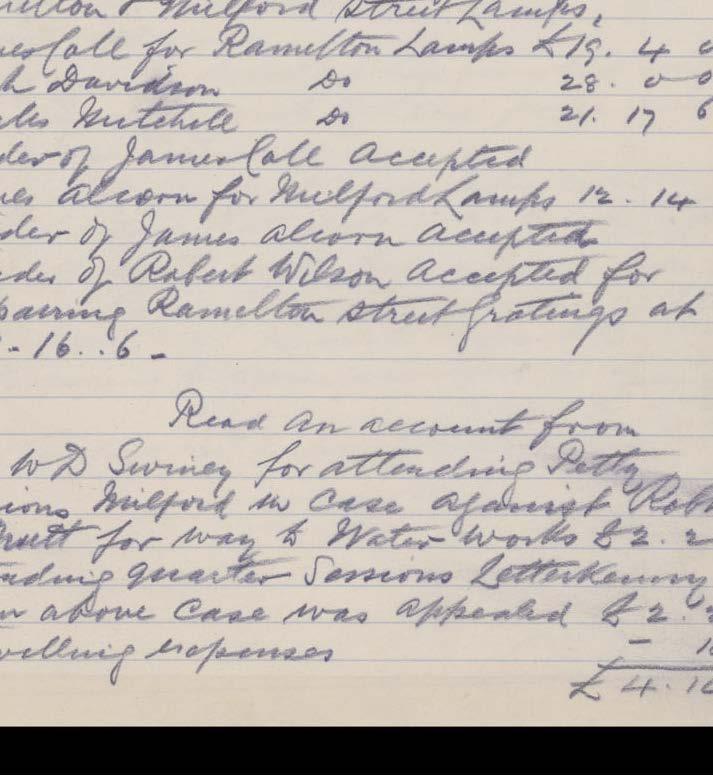 Milford Street Lamps,
Call for Ramelton Lamps £19. 4 0
Davidson Do 28. 0 0
Mitchell Do 21. 17 6
der of James Call Accepted
mes Alcorn for Milford Lamps 12. 14
der of James Alcorn Accepted
nder of Robert Wilson Accepted for
pairing Ramelton Street Gratings at
- 16.. 6 -
Read an account from
W D Swiney for attending Petty
sions Milford in case against Robt
for way to Water works £2. 2
nding Quarter Sessions Letterkenny
en above case was appealed £2.
velling expenses - 1
£4. 10